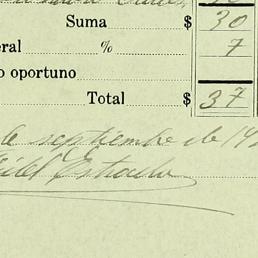 Suma $ 30
eral % 7
o oportuno
Total $ 37
de septiembre de 19
Fidel Estrada